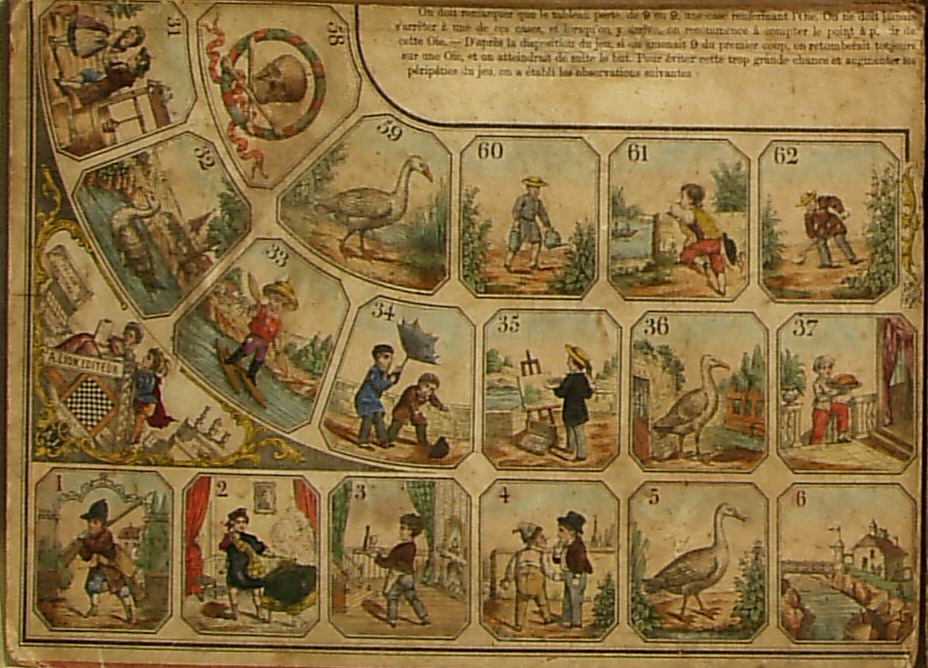 On doit remarquer que le tableau porte, de 9 en 9, une case renfermant l'Oie. On ne doit jamais
s'arrêter à une de ces cases, et lorsqu'on y arrive, on recommence à compter le point à p. ir de
cette Oie. — D'après la disposition du jeu, si on amenait 9 du premier coup, on retomberait toujours
sur une Oie, et on atteindrait de suite le but. Pour éviter cette trop grande chance et augmenter les
péripéties du jeu, on a établi les observations suivantes :
31
58
32
59
60
61
62
33
34
35
36
37
A. LION, EDITEUR
1
2
3
4
5
6